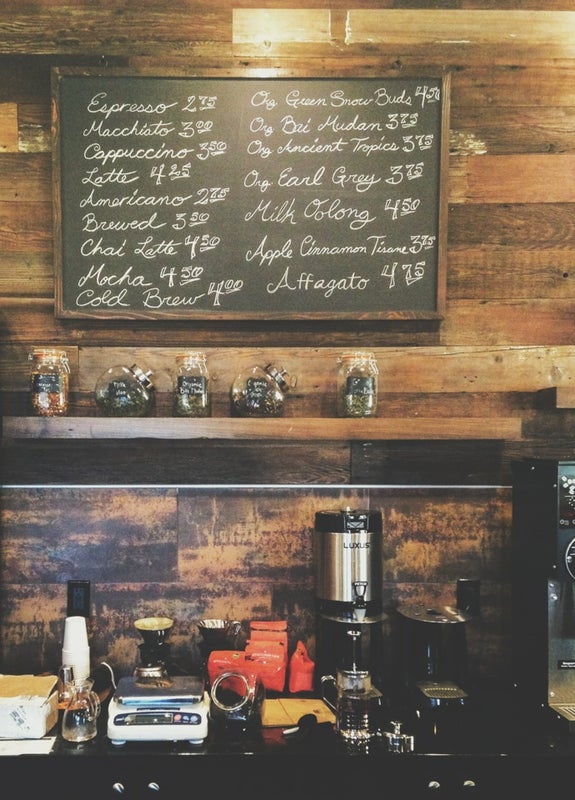 Espresso 2.75
Macchiato 3.00
Cappuccino 3.50
Latte 4.25
Americano 2.75
Brewed 3.50
Chai Latte 4.50
Mocha 4.50
Cold Brew 4.00
Org Green Snow Buds 4.50
Org Bai Mudan 3.75
Org Ancient Tropics 3.75
Org Earl Grey 3.75
Milk Oolong 4.50
Apple Cinnamon Tisane 3.75
Affagato 4.75
Milk
Organic
LUXUS